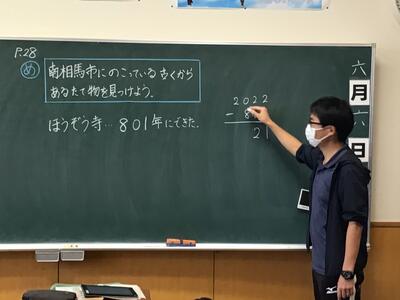 P.28
め
南相馬市にのこっている古くから
あるたて物を見つけよう。
ほうぞう寺…801年にできた。
2022
- 8
21
六
月
六
日